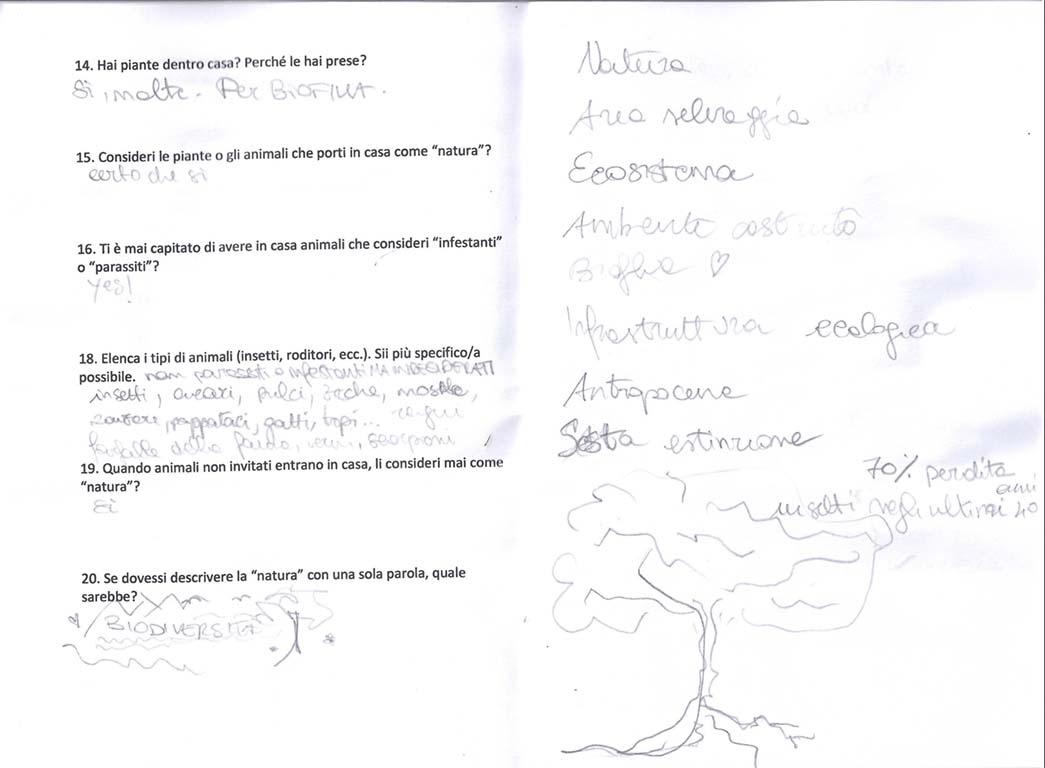 14. Hai piante dentro casa? Perché le hai prese?
Sì, molte. Per BIOFILIA.
15. Consideri le piante o gli animali che porti in casa come “natura”?
certo che sì
16. Ti è mai capitato di avere in casa animali che consideri “infestanti”
o “parassiti”?
Yes!
18. Elenca i tipi di animali (insetti, roditori, ecc.). Sii più specifico/a
possibile. non parassiti o infestanti MA INDESIDERATI
insetti, acari, pulci, zecche, mosche,
zanzare, pappataci, gatti, topi...
farfalle della farina, vermi, scorpioni
19. Quando animali non invitati entrano in casa, li consideri mai come
“natura”?
Sì
20. Se dovessi descrivere la “natura” con una sola parola, quale
sarebbe?
BIODIVERSITÀ
Natura
Area selvaggia
Ecosistema
Ambiente costruito
♡
Infrastruttura ecologica
Antropocene
Sesta estinzione
70% perdita
insetti negli ultimi 40
anni